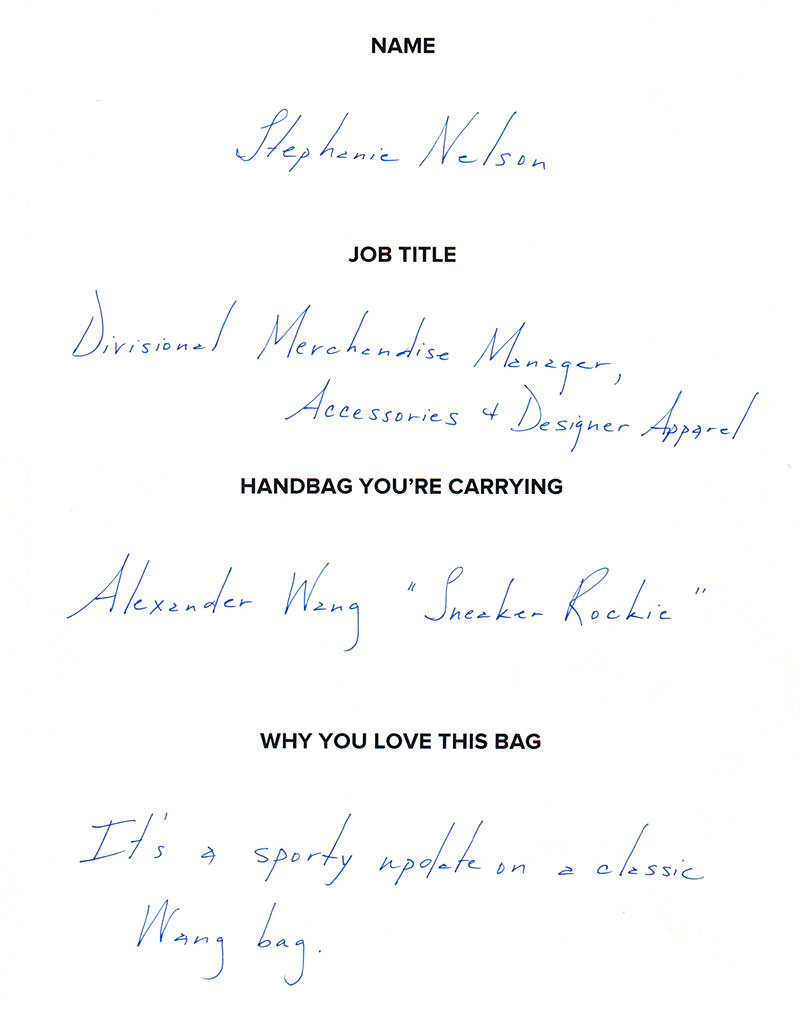 NAME
Stephanie Nelson
JOB TITLE
Divisional Merchandise Manager,
Accessories & Designer Apparel
HANDBAG YOU'RE CARRYING
Alexander Wang "Sneaker Rockie"
WHY YOU LOVE THIS BAG
It's a sporty update on a classic
Wang bag.